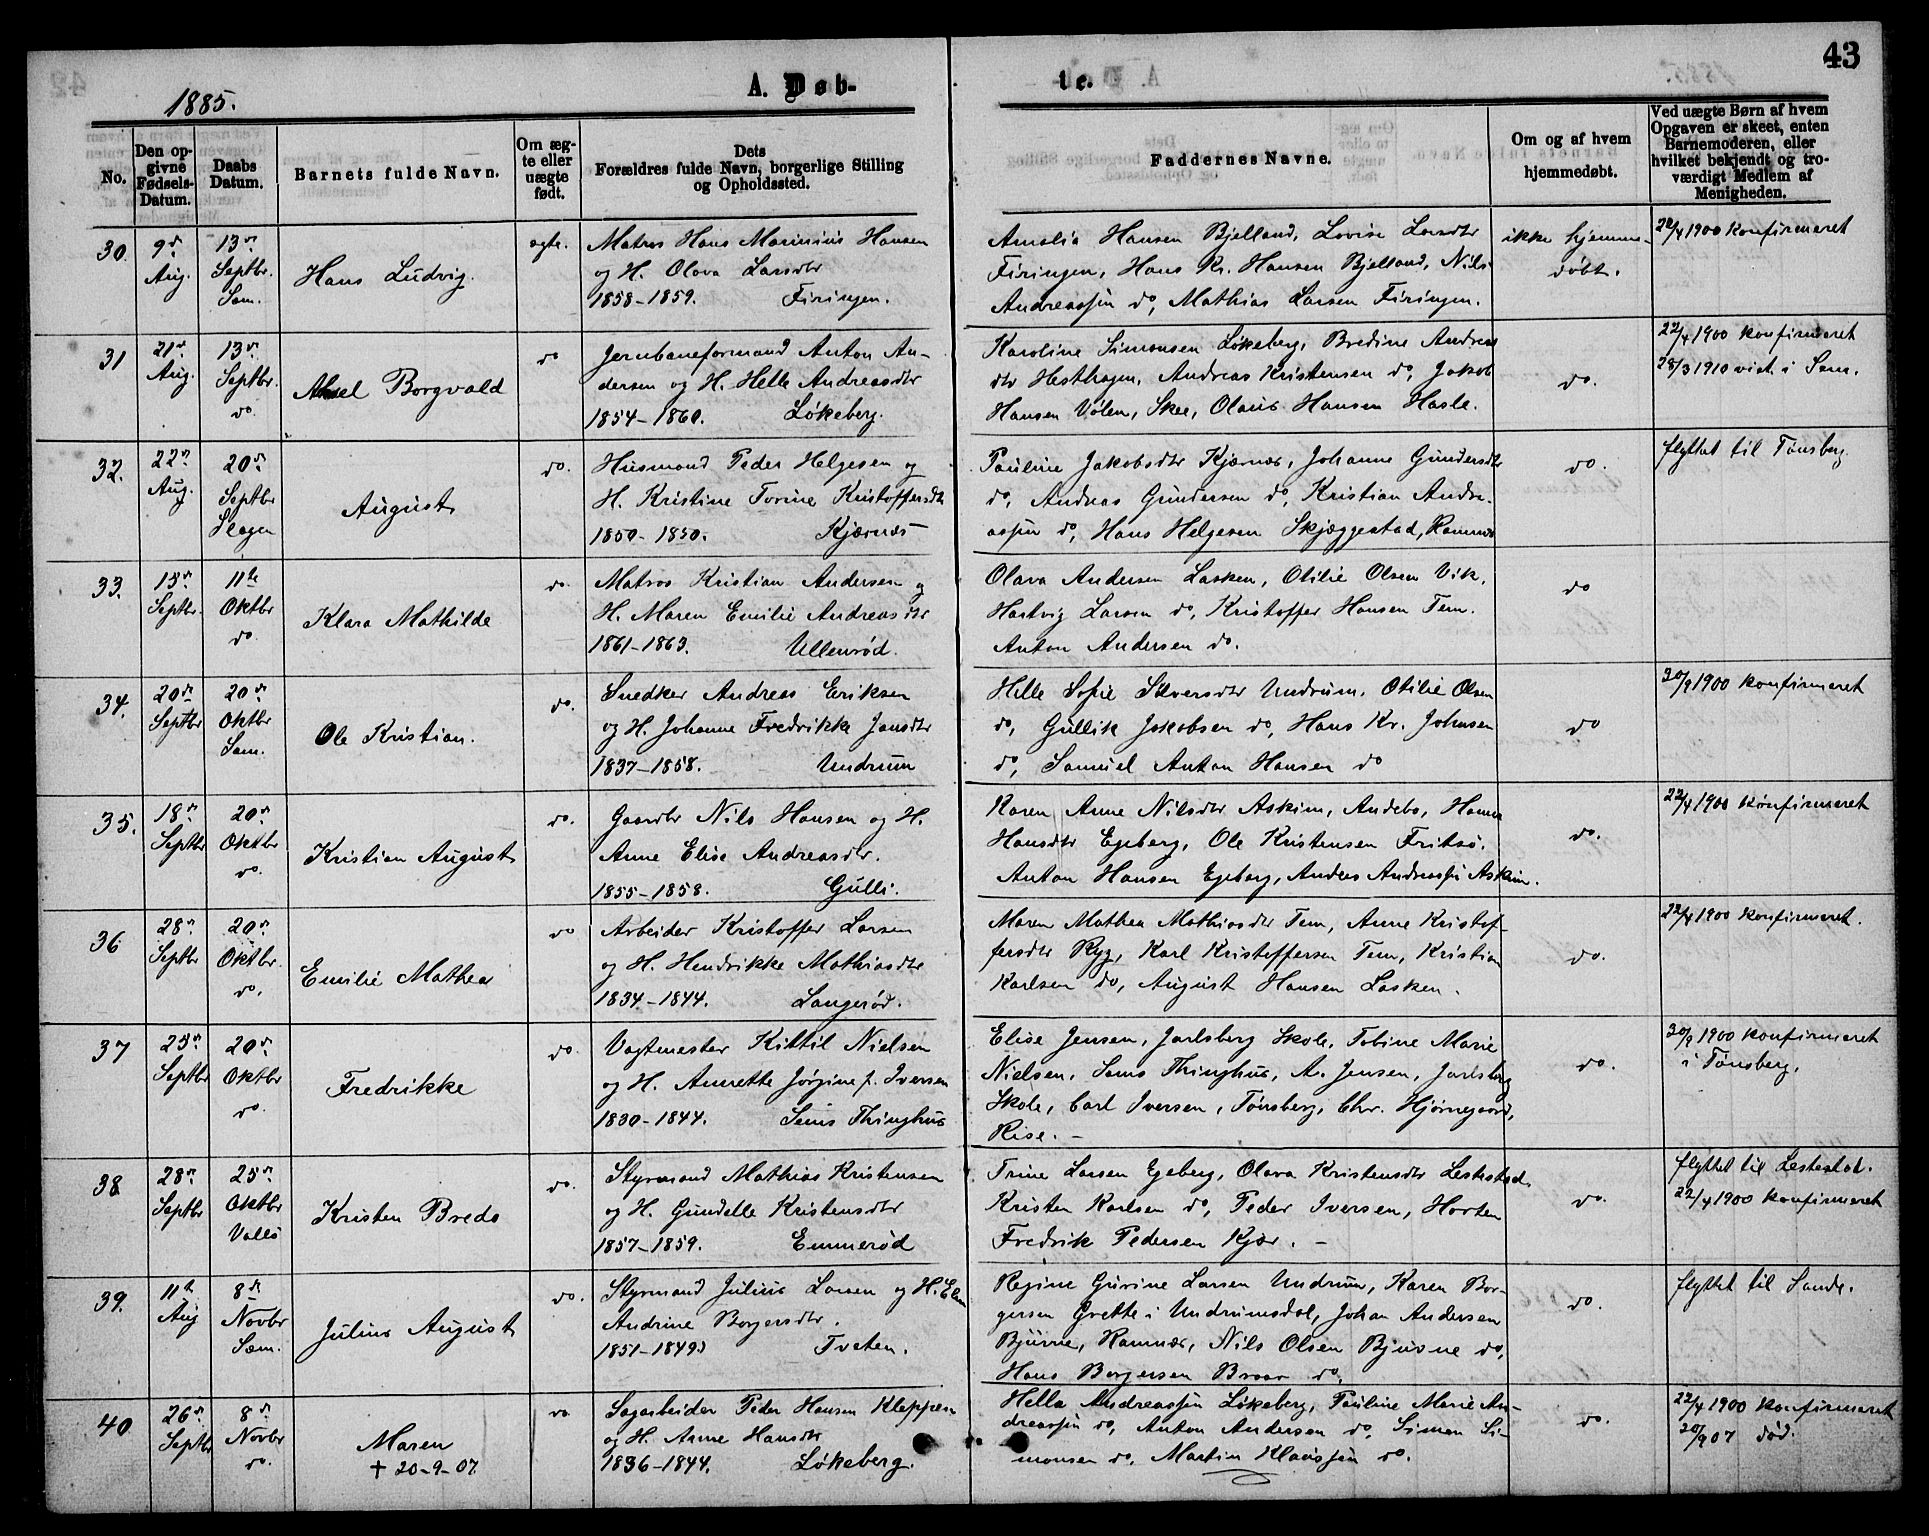 43
1885.
A. Døb-
te.
No.
Den op-
givne
Fødsels-
Datum.
Daabs
Datum.
Barnets fulde Navn.
Om æg-
te eller
uægte
født.
Dets
Forældres fulde Navn, borgerlige Stilling
og Opholdssted.
Faddernes Navne.
Om og af hvem
hjemmedøbt.
Ved uægte Børn af hvem
Opgaven er skeet, enten
Barnemoderen, eller
hvilket bekjendt og tro-
værdigt Medlem af
Menigheden.
30.
9d
Aug.
13d
Septbr.
Sem.
Hans Ludvig.
ægte.
Matros Hans Marinius Hansen
og H. Olava Larsdtr
1858-1859. Firingen.
Amalia Hansen Bjelland, Lovise Larsdtr
Firingen, Hans Kr. Hansen Bjelland, Nils
Andreassen do, Mathias Larsen Firingen.
ikke hjemme-
døbt.
22/4 1900 konfirmeret
31
21d
Aug.
13d
Septbr.
do.
Aksel Borgvald
do
Jernbaneformand Anton An-
dersen og H. Helle Andreasdtr
1854-1860. Løkeberg.
Karoline Simonsen Løkeberg, Bredine Andreas
dtr Hesthagen, Andreas Kristensen do, Jakob
Hansen Vølen, Skee, Olaus Hansen Hasle.
do.
22/4 1900 konfirmeret
28/3 1910 viet i Sem.
32.
22d
Aug.
20d
Septbr
Slagen
August
do.
Husmand Peder Helgesen og
H. Kristine Torine Kristoffersdtr
1850-1850. Kjærnæs
Pauline Jakobsdtr Kjærnæs, Johanne Gundersdtr
do, Andreas Gundersen do, Kristian Andre-
assen do, Hans Helgesen Skjæggestad, Ramnæs
do.
flyttet til Tønsberg.
33.
15d
Septbr.
11te
Oktbr
do.
Klara Mathilde
do.
Matros Kristian Andersen og
H. Maren Emilie Andreasdtr
1861-1863. Ullenrød.
Olava Andersen Lasken, Otilie Olsen Vik,
Hartvig Larsen do, Kristoffer Hansen Tem.
Anton Andersen do.
do
34.
20de
Septbr
20d
Oktbr
Sem.
Ole Kristian.
do.
Snedker Andreas Eriksen
og H. Johanne Fredrikke Jansdtr
1837-1858. Undrum
Helle Sofie Sivertsdtr Undrum, Otilie Olsen
do, Gullik Jakobsen do, Hans Kr. Johnsen
do, Samuel Anton Hansen do
do
30/9 1900 konfirmeret
35.
18d
Septbr
20d
Oktbr
do.
Kristian August
do.
Gaardbr Nils Hansen og H.
Anne Elise Andreasdtr.
1855-1858. Gulli.
Karen Anne Nilsdtr Askim, Andebo, Hanna
Hansdtr Egeberg, Ole Kristensen Fritsø,
Anton Hansen Egeberg, Anders Andreassen Askim.
do.
22/4 1900 konfirmeret
36
28d
Septbr
20d
Oktbr.
do.
Emilie Mathea
do
Arbeider Kristoffer Larsen
og H. Hendrikke Mathiasdtr
1834-1844. Langerød.
Maren Mathea Mathiasdtr Tem, Anne Kristof-
fersdtr Ryg, Karl Kristoffersen Tem, Kristian
Karlsen do, August Hansen Lasken.
do.
22/4 1900 konfirmeret.
37
25d
Septbr
20d
Oktbr
do.
Fredrikke
do.
Vagtmester Kittil Nielsen
og H. Annette Jørgine f. Iversen
1830-1844. Sems Thinghus
Elise Jensen, Jarlsberg Skole, Tobine Marie
Nielsen, Sems Thinghus, A. Jensen, Jarlsberg
Skole, Carl Iversen, Tønsberg, Chr. Hjørnegaard,
Rise. -
do.
30/9 1900 konfirmeret
i Tønsberg.
38
28d
Septbr
25d
Oktbr
Vallø
Kristen Bredo
do.
Styrmand Mathias Kristensen
og H. Gundelle Kristensdtr
1857-1859. Emmerød
Trine Larsen Egeberg, Olava Kristensdtr Lestestad
Kristen Karlsen do, Peder Iversen, Horten
Fredrik Pedersen Kjær. -
do.
flyttet til Lestestad.
22/4 1900 konfirmeret
39.
11te
Aug
8d
Novbr
Sem.
Julius August
do.
Styrmand Julius Larsen og H. Elen
Andrine Borgersdtr.
1851-1849 Tveten.
Regine Gurine Larsen Undrum, Karen Bor-
gersen Grette i Undrumsdal, Johan Andersen
Bjurne, Ramnæs, Nils Olsen Bjuvne do,
Hans Borgersen Braar do.
do.
flyttet til Sande.
40
26d
Septbr
8d
Novbr
do.
Maren
† 20-9-07.
do
Sagarbeider Peder Hansen Kleppen
og H. Anne Hansdtr
1836-1844. Løkeberg.
Hella Andreassen Løkeberg, Pauline Marie An-
dreassen do, Anton Andersen do, Simen Si-
monsen do, Martin Klausen do.
do.
22/4 1900 konfirmeret
20/9 07 død.